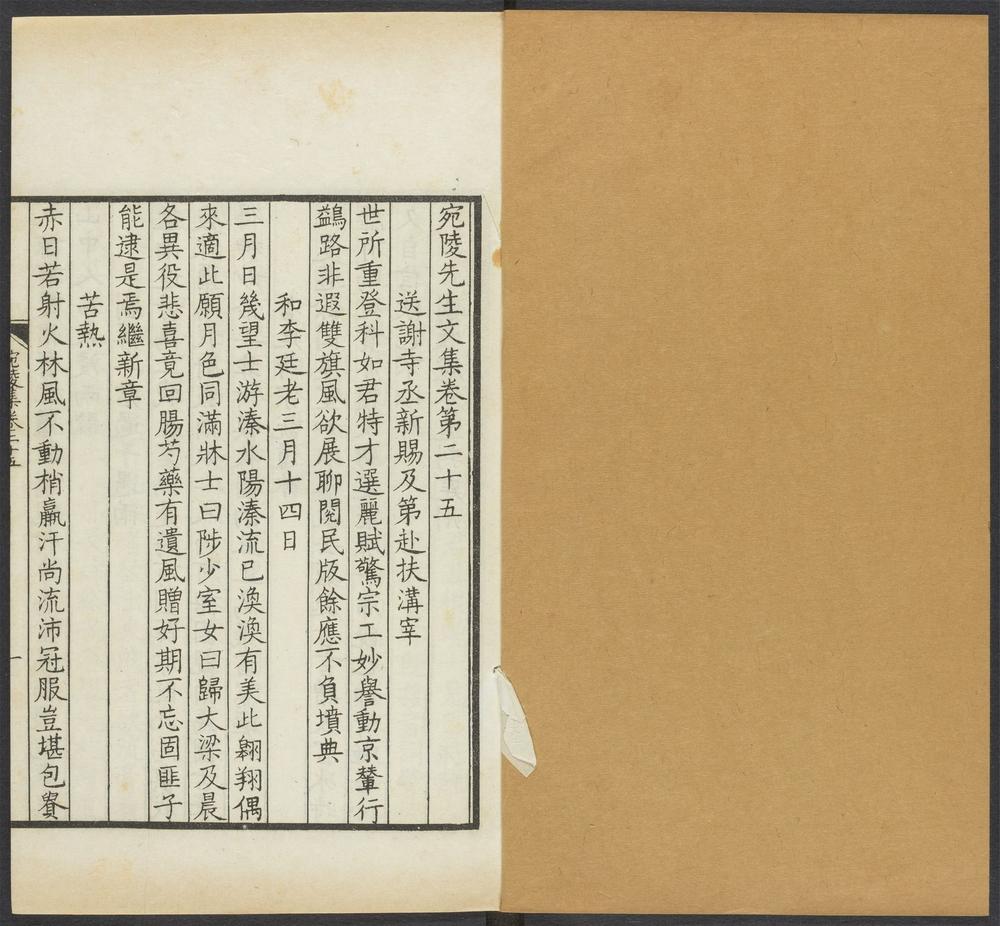 宛陵先生文集卷第二十五
送謝寺丞新賜及第赴扶溝宰
世所重登科如君特才選麗賦驚宗工妙譽動京輦行
鷁路非遐雙旗風欲展聊閱民版餘應不負墳典
和李廷老三月十四日
三月日幾望士游溱水陽溱流已渙渙有美此翱翔偶
來適此願月色同滿牀士曰陟少室女曰歸大梁及晨
各異役悲喜竟回腸芍藥有遺風贈好期不忘固匪子
能逮是焉繼新章
苦熱
赤日若射火林風不動梢羸汗尚流沛冠服豈堪包賓
宛陵集卷二十五
一